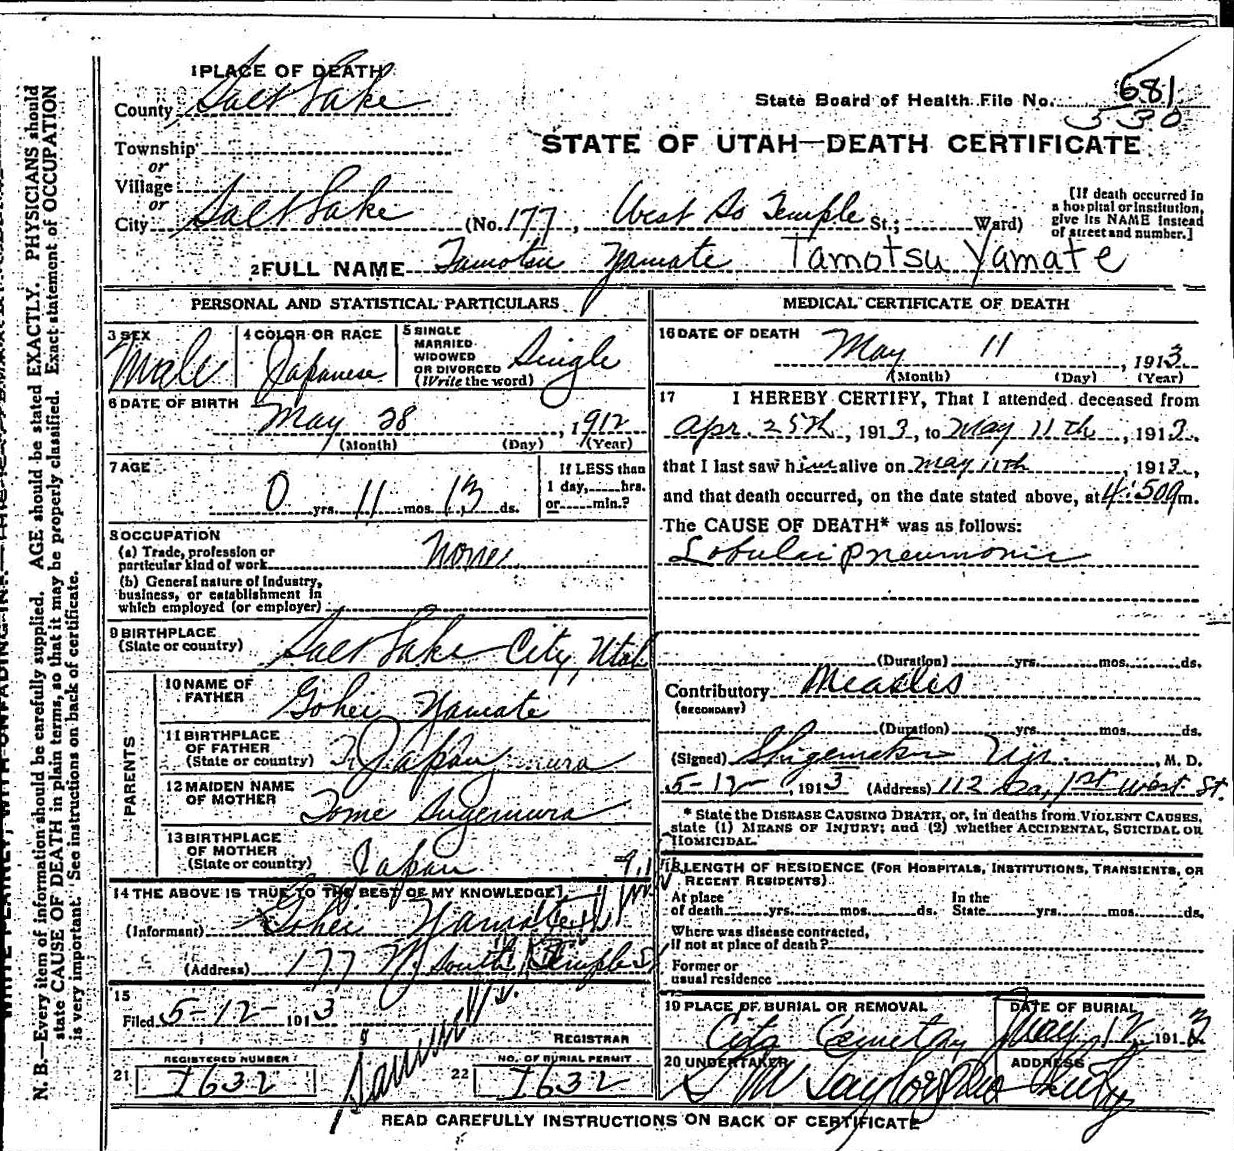 1 PLACE OF DEATH
County Salt Lake
State Board of Health File No. 681
530
Township
or
Village
or
City Salt Lake (No. 177, West So Temple St.; Ward)
[If death occurred in a hospital or institution, give its NAME instead of street and number.]
STATE OF UTAH—DEATH CERTIFICATE
2 FULL NAME Tamotsu Yamate Tamotsu Yamate
PERSONAL AND STATISTICAL PARTICULARS
3 SEX Male
4 COLOR OR RACE Japanese
5 SINGLE MARRIED WIDOWED OR DIVORCED (Write the word) Single
6 DATE OF BIRTH May 28, 1912
(Month) (Day) (Year)
7 AGE 0 yrs. 11 mos. 13 ds.
If LESS than 1 day, hrs. or min.?
8 OCCUPATION
(a) Trade, profession or particular kind of work None
(b) General nature of Industry, business, or establishment in which employed (or employer)
9 BIRTHPLACE (State or country) Salt Lake City, Utah
PARENTS
10 NAME OF FATHER Gohei Yamate
11 BIRTHPLACE OF FATHER (State or country) Japan
12 MAIDEN NAME OF MOTHER Tome Sugemura
13 BIRTHPLACE OF MOTHER (State or country) Japan
14 THE ABOVE IS TRUE TO THE BEST OF MY KNOWLEDGE
(Informant) Gohei Yamate
(Address) 177 W. South Temple St
15
Filed 5-12- 1913
REGISTRAR
REGISTERED NUMBER
21 I632
NO. OF BURIAL PERMIT
22 I632
MEDICAL CERTIFICATE OF DEATH
16 DATE OF DEATH May 11, 1913
(Month) (Day) (Year)
17 I HEREBY CERTIFY, That I attended deceased from
Apr. 25th, 1913, to May 11th, 1913.
that I last saw him alive on May 11th, 1913,
and that death occurred, on the date stated above, at 4:50 a m.
The CAUSE OF DEATH* was as follows:
Lobular pneumonia
(Duration) yrs. mos. ds.
Contributory Measles
(SECONDARY)
(Duration) yrs. mos. ds.
(Signed) , M. D.
5-12-, 1913 (Address) 112 So, 1st West St.
* State the DISEASE CAUSING DEATH, or, in deaths from VIOLENT CAUSES,
state (1) MEANS OF INJURY; and (2) whether ACCIDENTAL, SUICIDAL OR
HOMICIDAL.
18 LENGTH OF RESIDENCE (FOR HOSPITALS, INSTITUTIONS, TRANSIENTS, OR
RECENT RESIDENTS)
At place of death yrs. mos. ds. In the State yrs. mos. ds.
Where was disease contracted,
if not at place of death?
Former or
usual residence
19 PLACE OF BURIAL OR REMOVAL City Cemetery
DATE OF BURIAL May 12 1913
20 UNDERTAKER S M Taylor
ADDRESS City
READ CAREFULLY INSTRUCTIONS ON BACK OF CERTIFICATE
N. B.—Every item of information should be carefully supplied. AGE should be stated EXACTLY. PHYSICIANS should
state CAUSE OF DEATH in plain terms, so that it may be properly classified. Exact statement of OCCUPATION
is very important. See instructions on back of certificate.